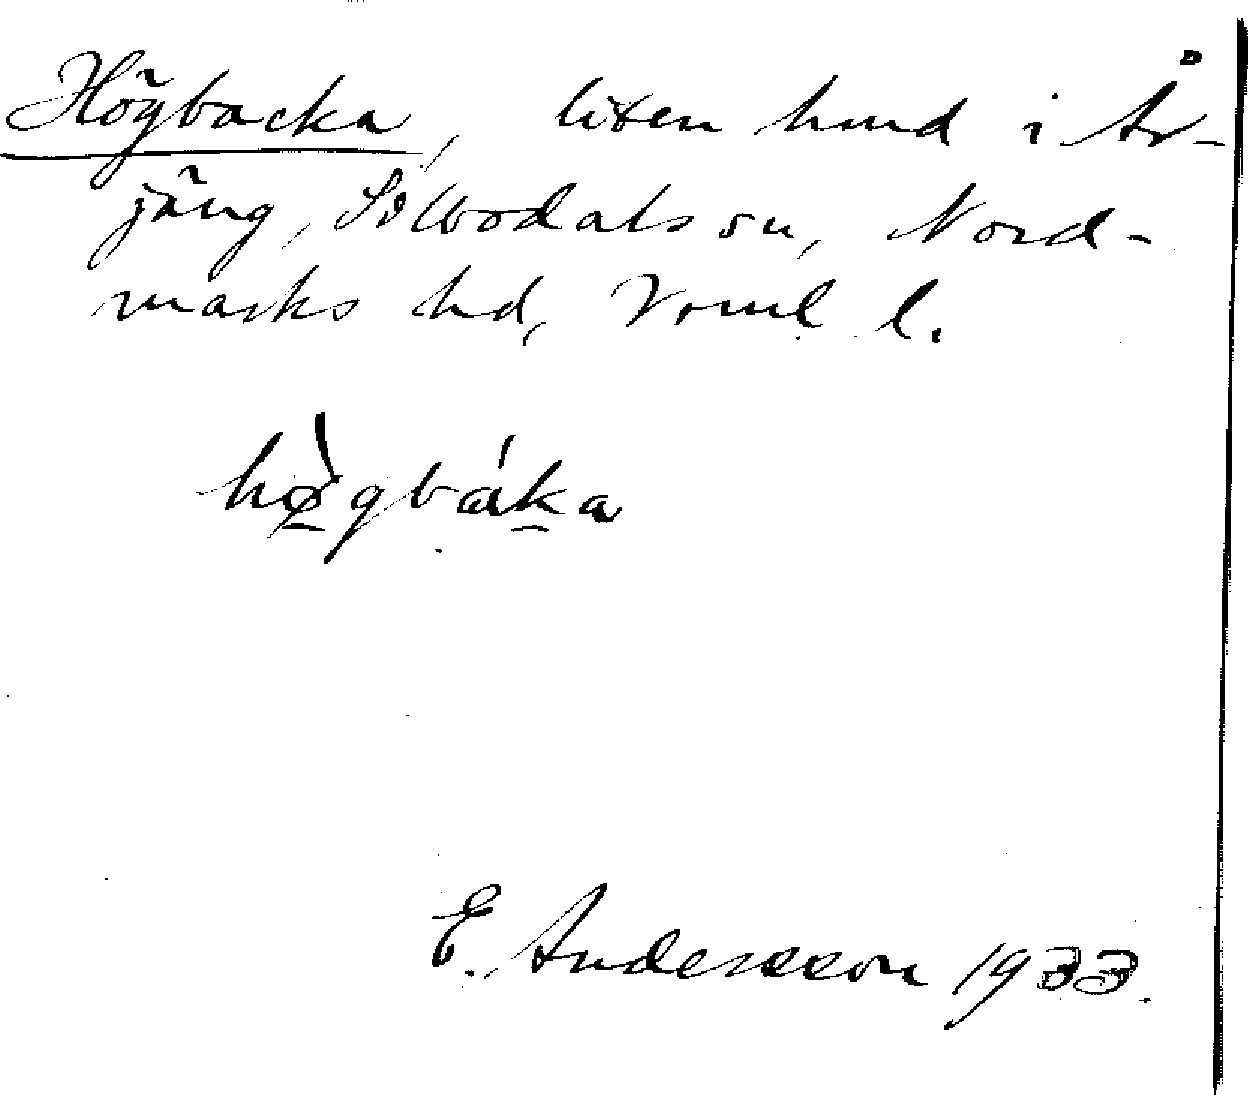 Högbacka, liten hmd i År-
jäng, Silbodals sn, Nord-
marks hd, Vrml l.
hø̱̀gbáḵa
E. Andersson 1933.